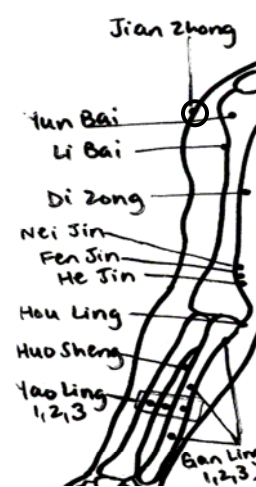 Jian Zhong
Yun Bai
Li Bai
Di Zong
Nei Jin
Fen Jin
He Jin
Hou Ling
Huo Sheng
Yao Ling
1,2,3
Gan Lin
1,2,3